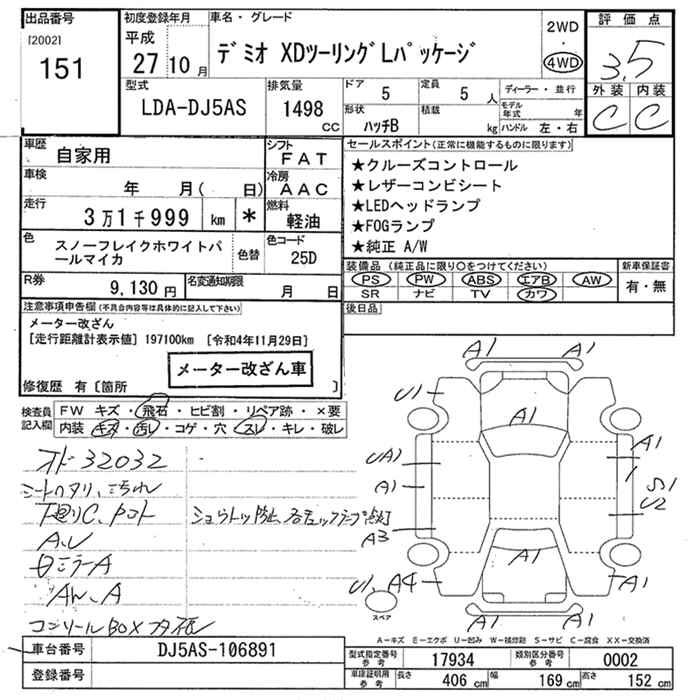 出品番号
[2002]
151
初度登録年月
平成
27 10 月
車名・グレード
デミオ XDツーリングLパッケージ
2WD
・
4WD
評価点
3.5
外装 内装
C C
型式
LDA-DJ5AS
排気量
1498
cc
ドア
5
定員
5 人
形状
ハッチB
積載
kg
ディーラー・並行
モデル年式 年
ハンドル 左・右
車歴
自家用
シフト
FAT
車検
年 月( 日)
冷房
AAC
走行
3万1千999 km *
燃料
軽油
色
スノーフレイクホワイトパールマイカ
色替
色コード
25D
R券
9,130 円
名変通知期限
月 日
セールスポイント(正常に機能するものに限ります)
★クルーズコントロール
★レザーコンビシート
★LEDヘッドランプ
★FOGランプ
★純正 A/W
装備品 (純正品に限り○をつけてください)
PS PW ABS エアB AW
SR ナビ TV カワ
新車保証書
有・無
後日品
注意事項申告欄(不具合内容等は具体的に記入して下さい)
メーター改ざん
[走行距離計表示値] 197100km [令和4年11月29日]
メーター改ざん車
修復歴 有〔箇所 〕
検査員記入欄
FW キズ・飛石・ヒビ割・リペア跡・×要
内装 キズ・汚レ・コゲ・穴・スレ・キレ・破レ
オド 32032
下廻りC、
A、U
ミラーA
AW、A
コンソールBOX
A1
A1
U1
A1
A1
UA1
A1
A1
S1
U2
A3
A1
U1、A4
A1
A1
スペア
A-キズ E-エクボ U-凹み W-補修跡 S-サビ C-腐食 XX-交換済
車台番号
DJ5AS-106891
登録番号
型式指定番号
参考
17934
類別区分番号
参考
0002
車庫証明用
参考
長さ
406 cm
幅
169 cm
高さ
152 cm